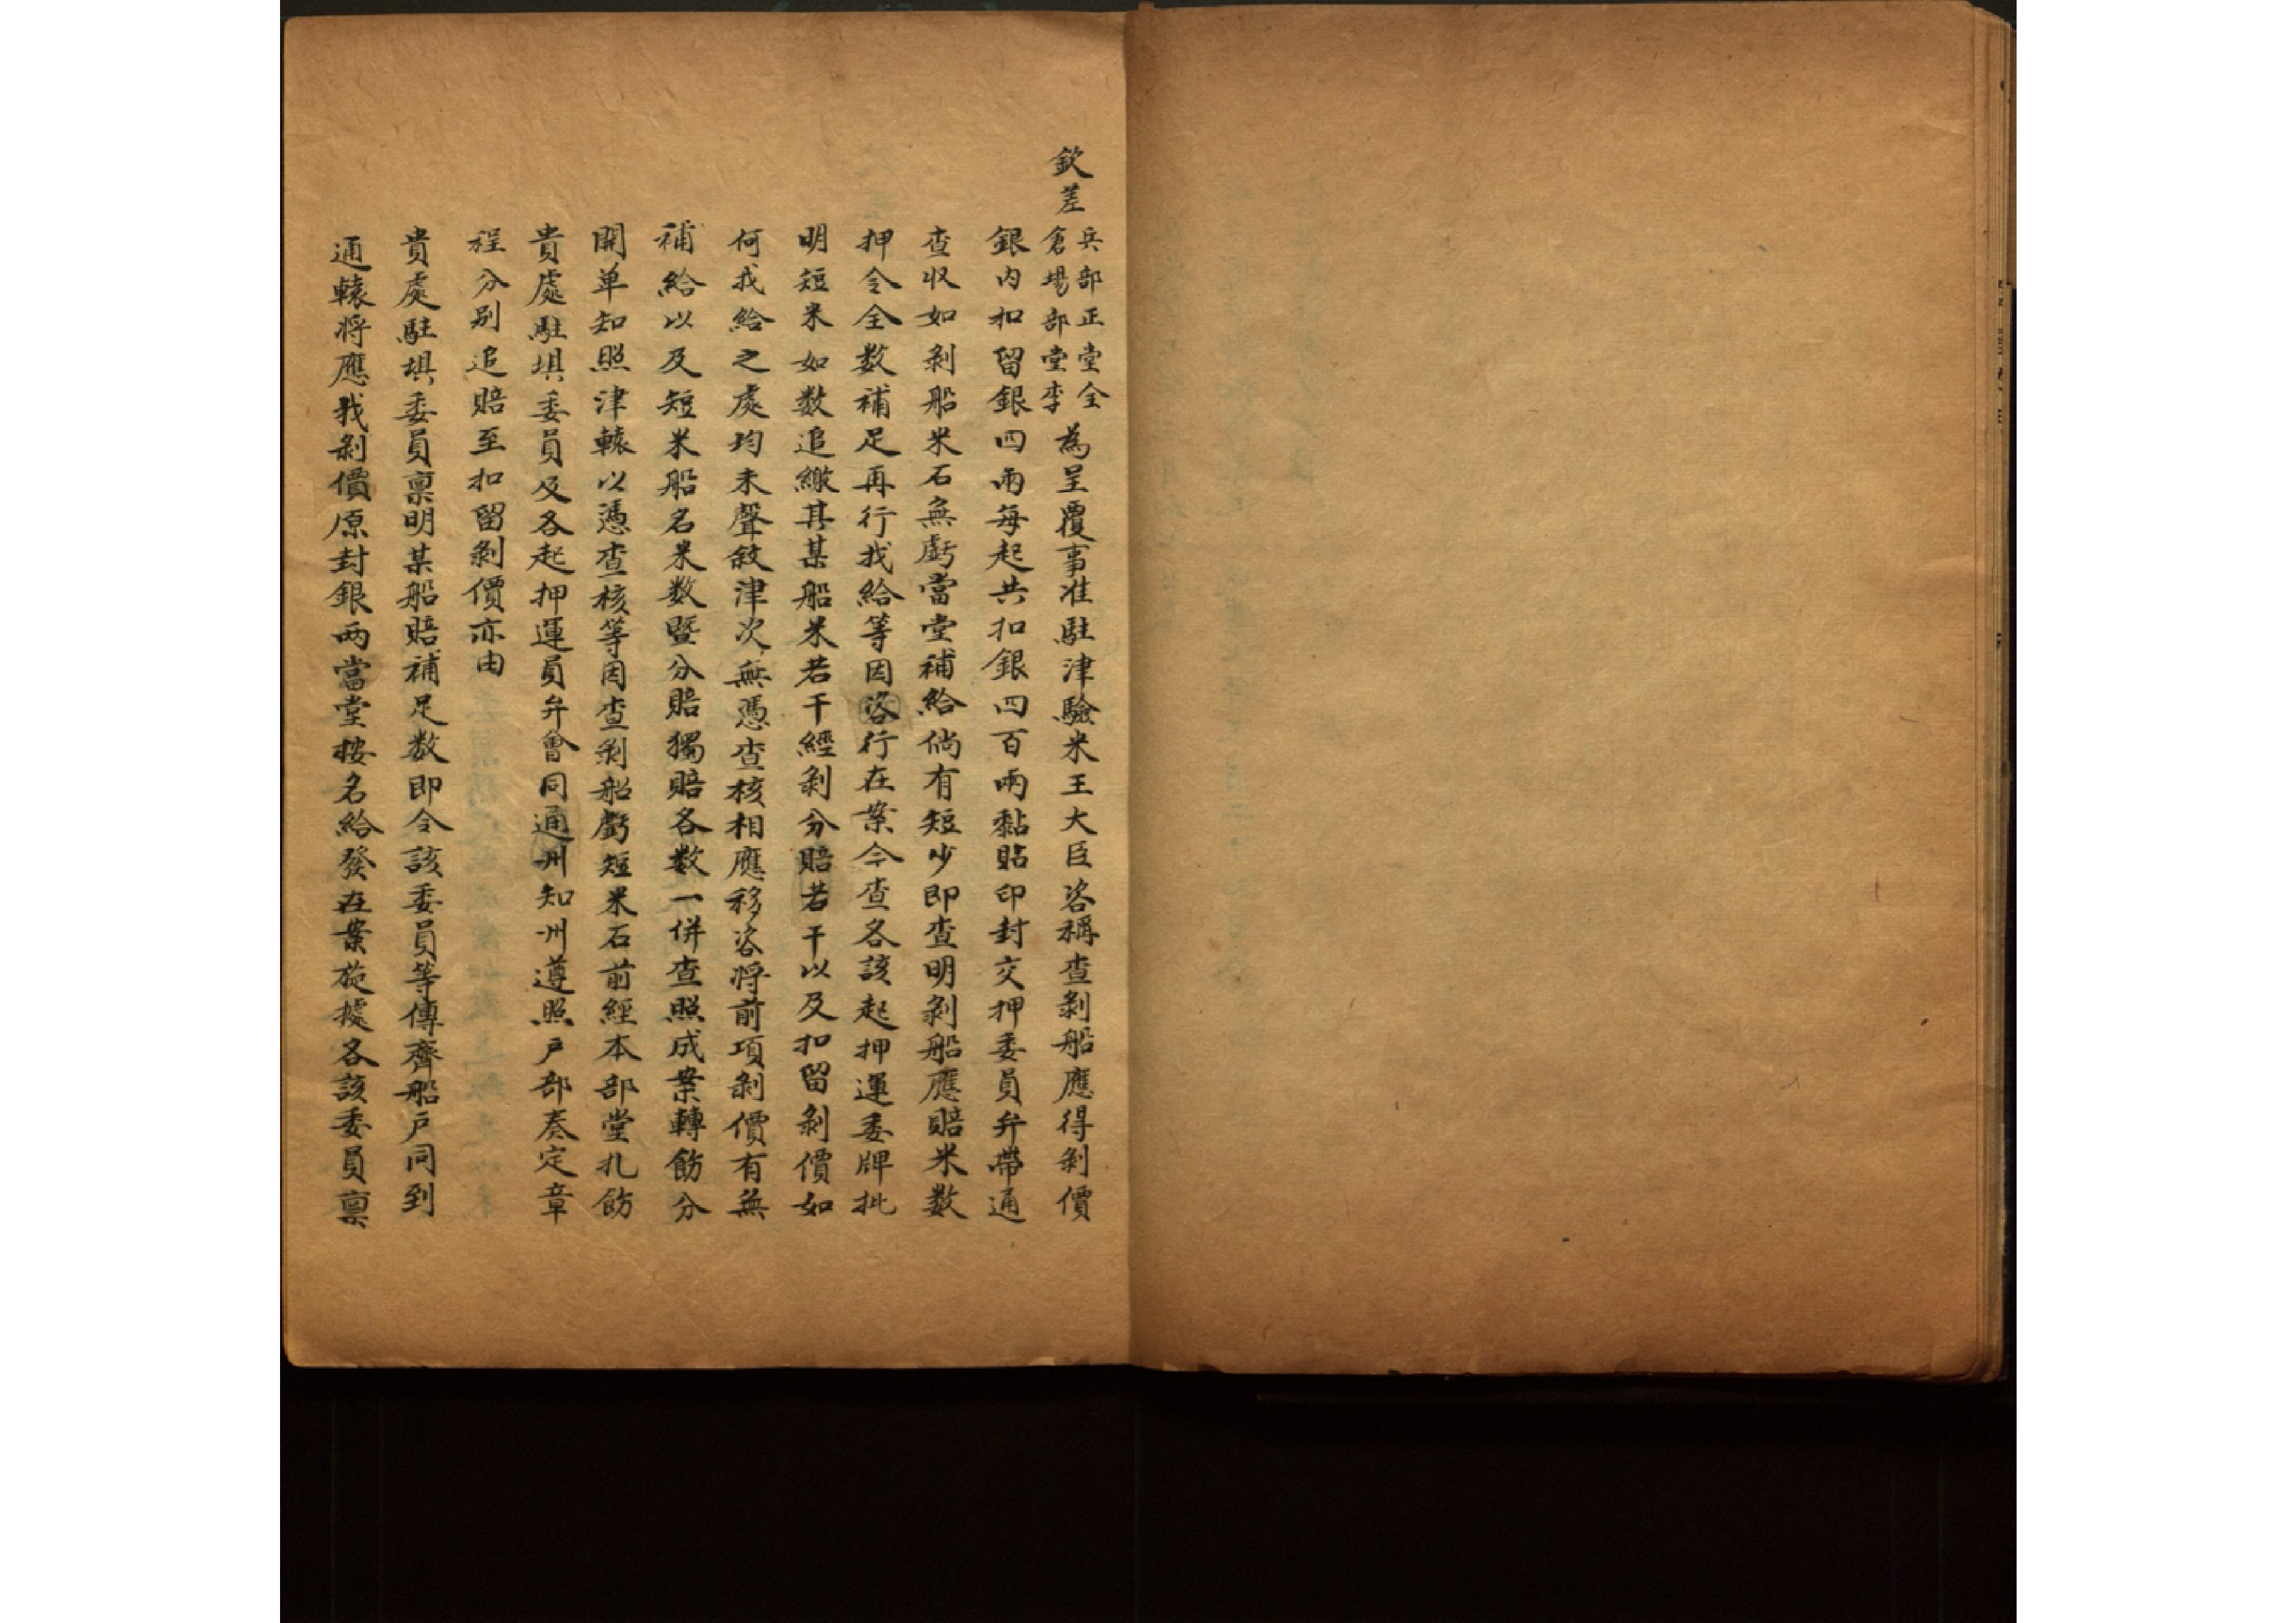 欽差兵部正堂全倉場部堂李為呈覆事准駐津驗米王大臣咨稱查剝船應得剝價
銀内扣留銀四兩每起共扣銀四百兩黏貼印封交押委員弁帶通
查收如剝船米石無虧當堂補給倘有短少即查明剝船應賠米数
押令全数補足再行找給等因咨行在案今查各該起押運委牌批
明短米如数追繳其某船米若干經剝分賠若干以及扣留剝價如
何找給之處均未聲敘津次無憑查核相應移咨将前項剝價有無
補給以及短米船名米数暨分賠獨賠各数一併查照成案轉飭分
開单知照津轅以憑查核等因查剝船虧短米石前經本部堂扎飭
貴處駐垻委員及各起押運員弁會同通州知州遵照户部奏定章
程分别追賠至扣留剝價亦由
貴處駐垻委員禀明某船賠補足数即令該委員等傳齊船户同到
通轅将應找剝價原封銀两當堂按名給發在案旋據各該委員禀